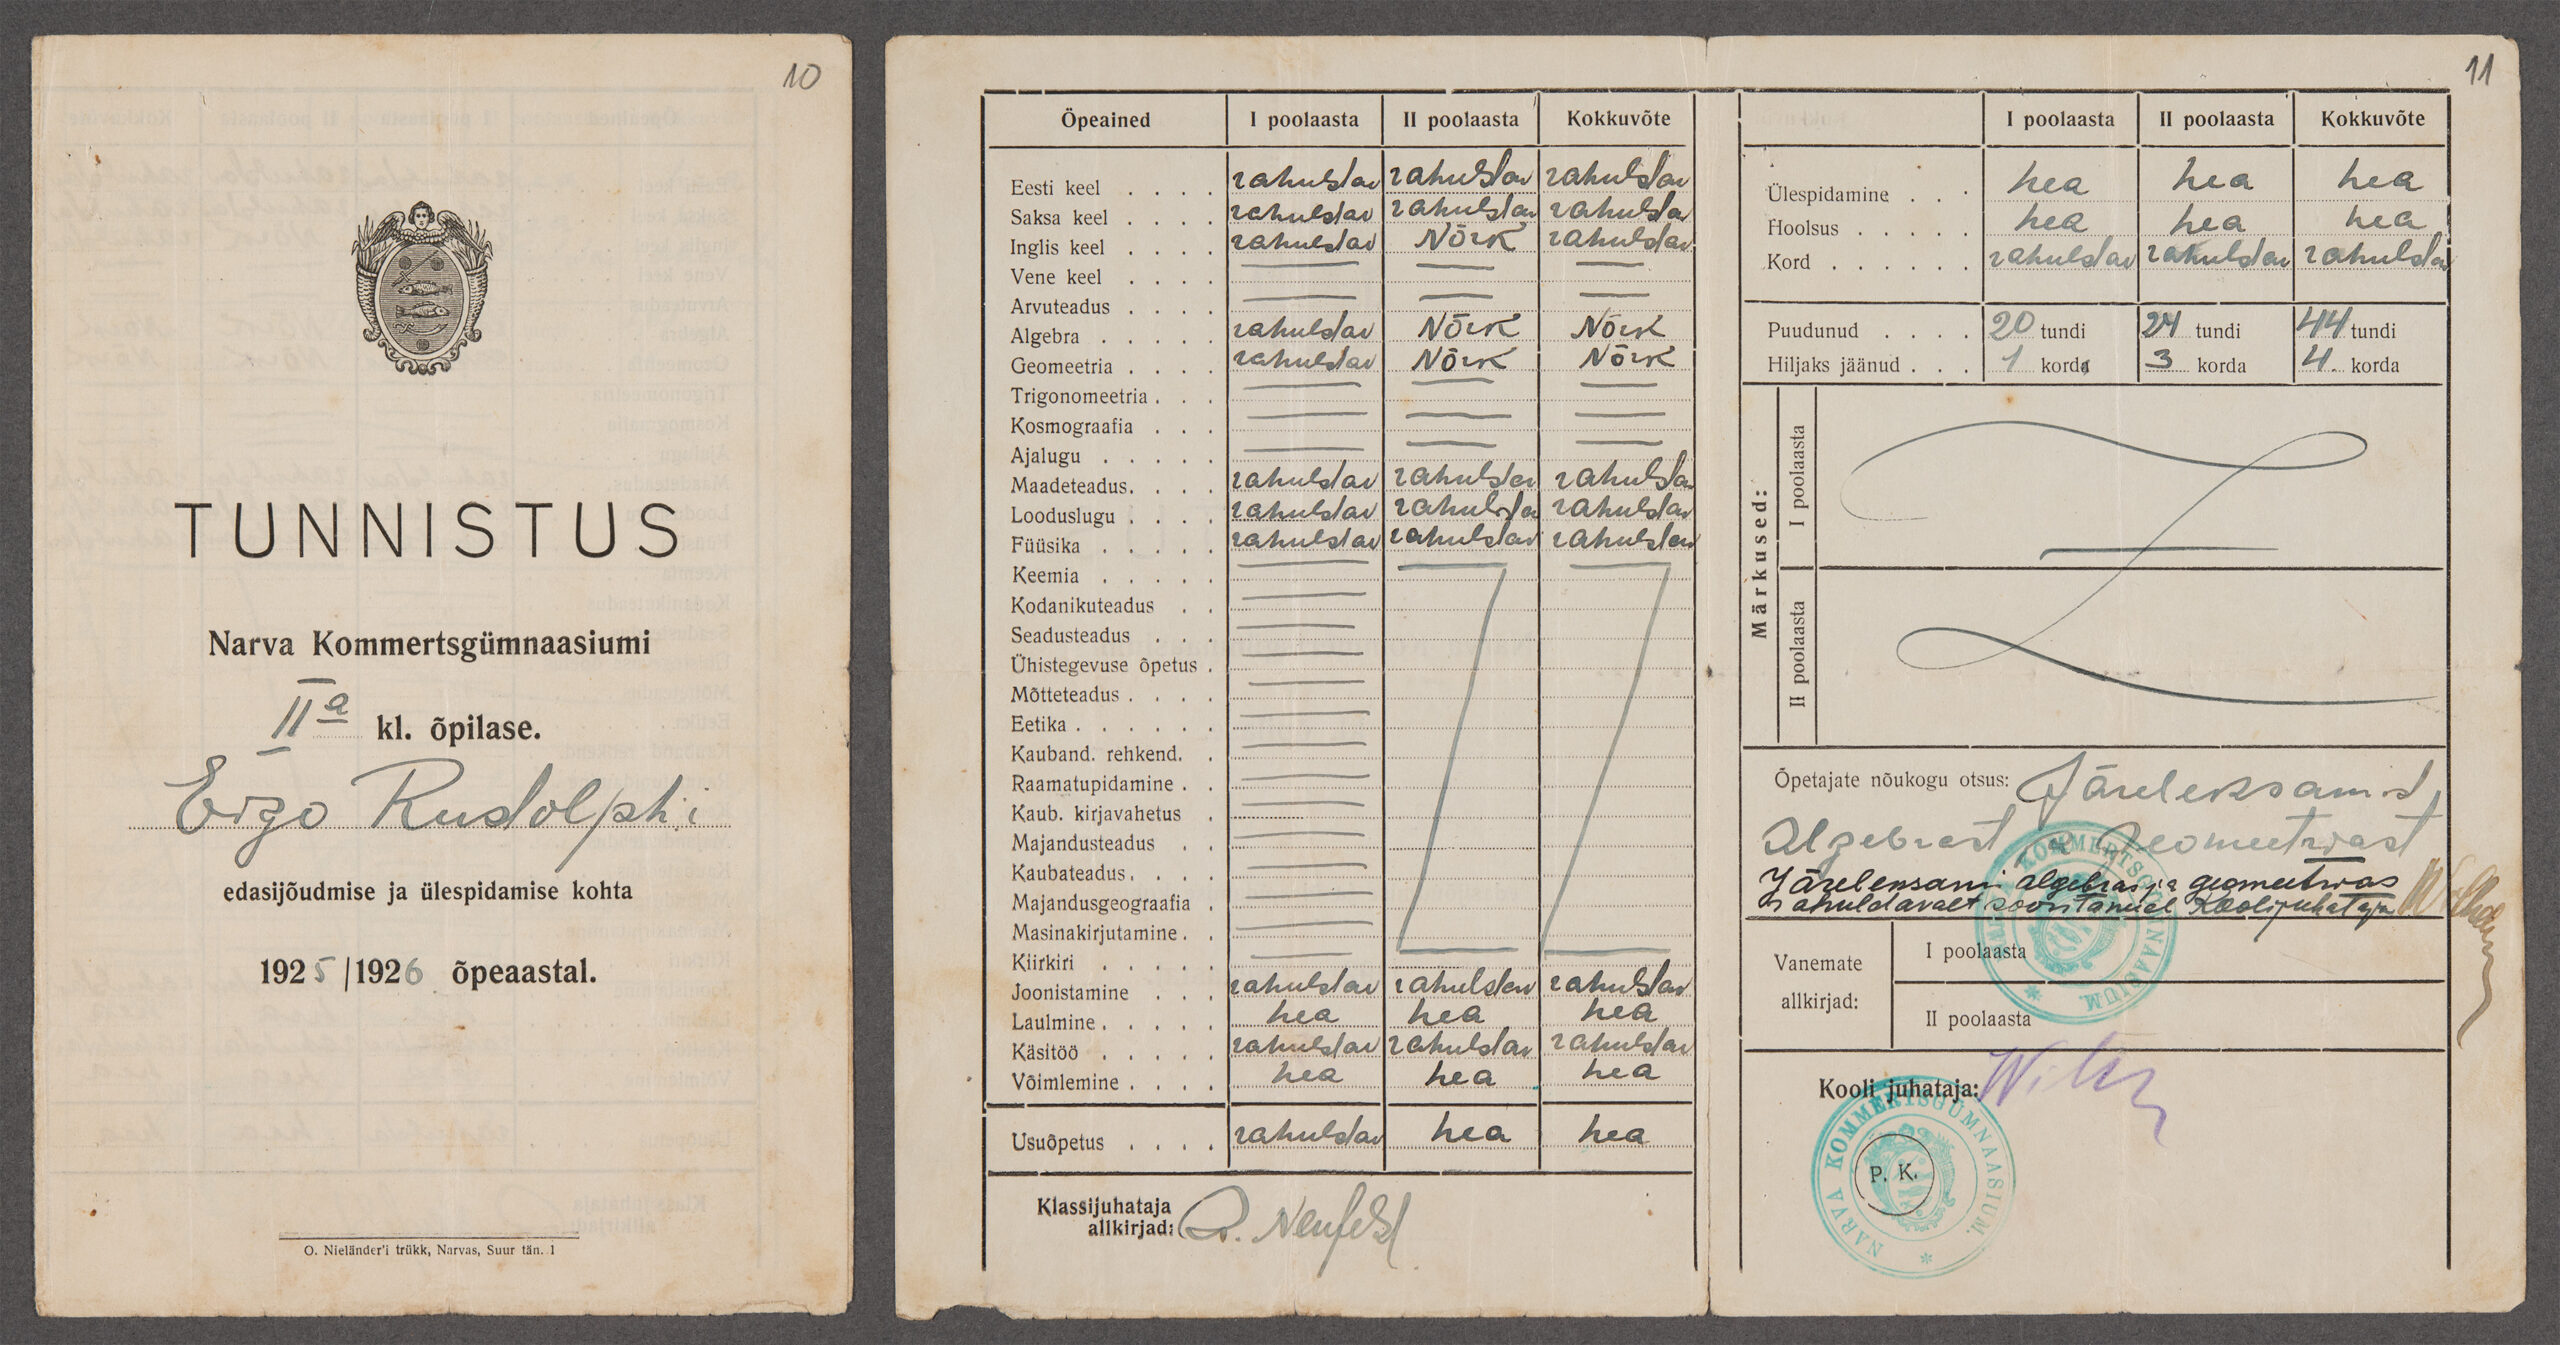 10
TUNNISTUS
Narva Kommertsgümnaasiumi
IIa kl. õpilase.
Ergo Rudolphi
edasijõudmise ja ülespidamise kohta
1925/1926 õpeaastal.
O. Nieländer'i trükk, Narvas, Suur tän. 1
Õpeained I poolaasta II poolaasta Kokkuvõte
Eesti keel . . . . rahuldav rahuldav rahuldav
Saksa keel . . . . rahuldav rahuldav rahuldav
Inglis keel . . . . rahuldav Nõrk rahuldav
Vene keel . . . . — — —
Arvuteadus . . . . — — —
Algebra . . . . . rahuldav Nõrk Nõrk
Geomeetria . . . . rahuldav Nõrk Nõrk
Trigonomeetria . . . — — —
Kosmograafia . . . — — —
Ajalugu . . . . . — — —
Maadeteadus. . . . rahuldav rahuldav rahuldav
Looduslugu . . . . rahuldav rahuldav rahuldav
Füüsika . . . . . rahuldav rahuldav rahuldav
Keemia . . . . . — — —
Kodanikuteadus . . —
Seadusteadus . . . —
Ühistegevuse õpetus . —
Mõtteteadus . . . . —
Eetika . . . . . . —
Kauband. rehkend. . —
Raamatupidamine . . —
Kaub. kirjavahetus . —
Majandusteadus . . —
Kaubateadus. . . . —
Majandusgeograafia . —
Masinakirjutamine . . —
Kiirkiri . . . . . — — —
Joonistamine . . . rahuldav rahuldav rahuldav
Laulmine . . . . . hea hea hea
Käsitöö . . . . . rahuldav rahuldav rahuldav
Võimlemine . . . . hea hea hea
Usuõpetus . . . . rahuldav hea hea
Klassijuhataja
allkirjad: R. Neufeld
11
I poolaasta II poolaasta Kokkuvõte
Ülespidamine . . . hea hea hea
Hoolsus . . . . . hea hea hea
Kord . . . . . . rahuldav rahuldav rahuldav
Puudunud . . . . 20 tundi 24 tundi 44 tundi
Hiljaks jäänud . . . 1 korda 3 korda 4. korda
Märkused:
I poolaasta
II poolaasta
Õpetajate nõukogu otsus: Järeleksamid
Algebrast ja Geomeetriast
Järeleksami algebras ja geomeetrias
rahuldavalt sooritanud Koolijuhataja
NARVA KOMMERTSGÜMNAASIUM.
Vanemate
allkirjad:
I poolaasta
II poolaasta
Kooli juhataja:
NARVA KOMMERTSGÜMNAASIUM.
P. K.